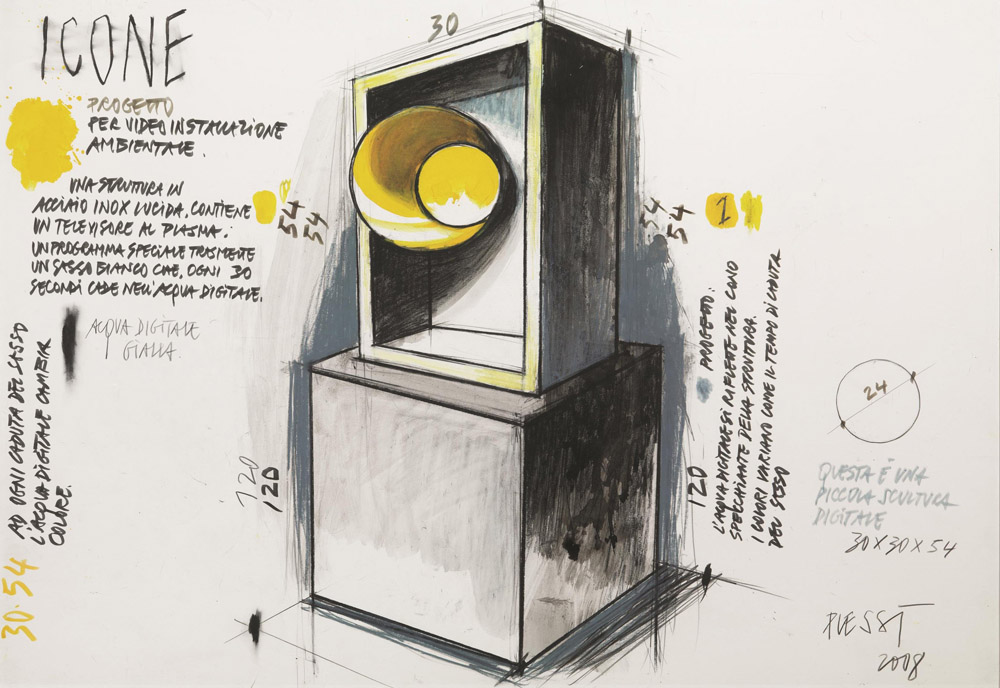 ICONE
PROGETTO
PER VIDEO INSTALLAZIONE
AMBIENTALE.
UNA STRUTTURA IN
ACCIAIO INOX LUCIDA, CONTIENE
UN TELEVISORE AL PLASMA.
UN PROGRAMMA SPECIALE TRASMETTE
UN SASSO BIANCO CHE, OGNI 30
SECONDI CADE NELL'ACQUA DIGITALE.
ACQUA DIGITALE
GIALLA.
AD OGNI CADUTA DEL SASSO
L'ACQUA DIGITALE CAMBIA
COLORE.
30·54
30
54
54
120
120
54
54
1
PROGETTO:
L'ACQUA DIGITALE SI RIFLETTE NEL CONO
SPECCHIANTE DELLA STRUTTURA.
I COLORI VARIANO COME IL TEMPO DI CADUTA
DEL SASSO
120
24
QUESTA È UNA
PICCOLA SCULTURA
DIGITALE
30X30X54
PLESSI
2008